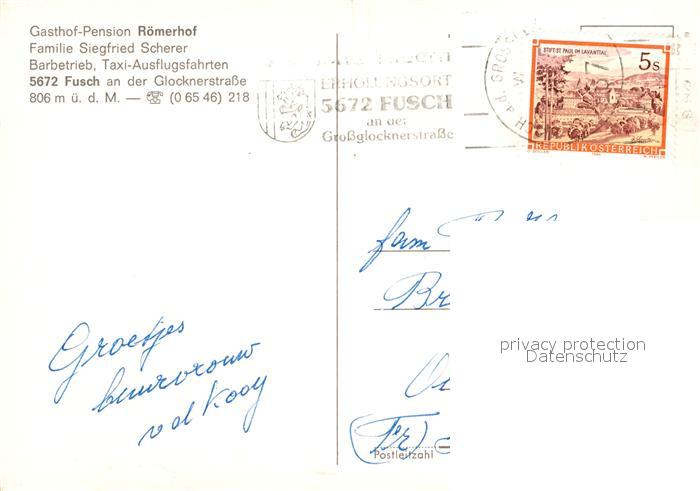 Gasthof-Pension Römerhof
Familie Siegfried Scherer
Barbetrieb, Taxi-Ausflugsfahrten
5672 Fusch an der Glocknerstraße
806 m ü. d. M. — ☎ (0 65 46) 218
ERHOLUNGSORT
5672 FUSCH
an der
Großglocknerstraße
STIFT ST. PAUL IM LAVANTTAL
5s
REPUBLIK ÖSTERREICH
fam
Br
(Fr)
Postleitzahl
Groetjes
buurvrouw
v d Kooy
privacy protection
Datenschutz